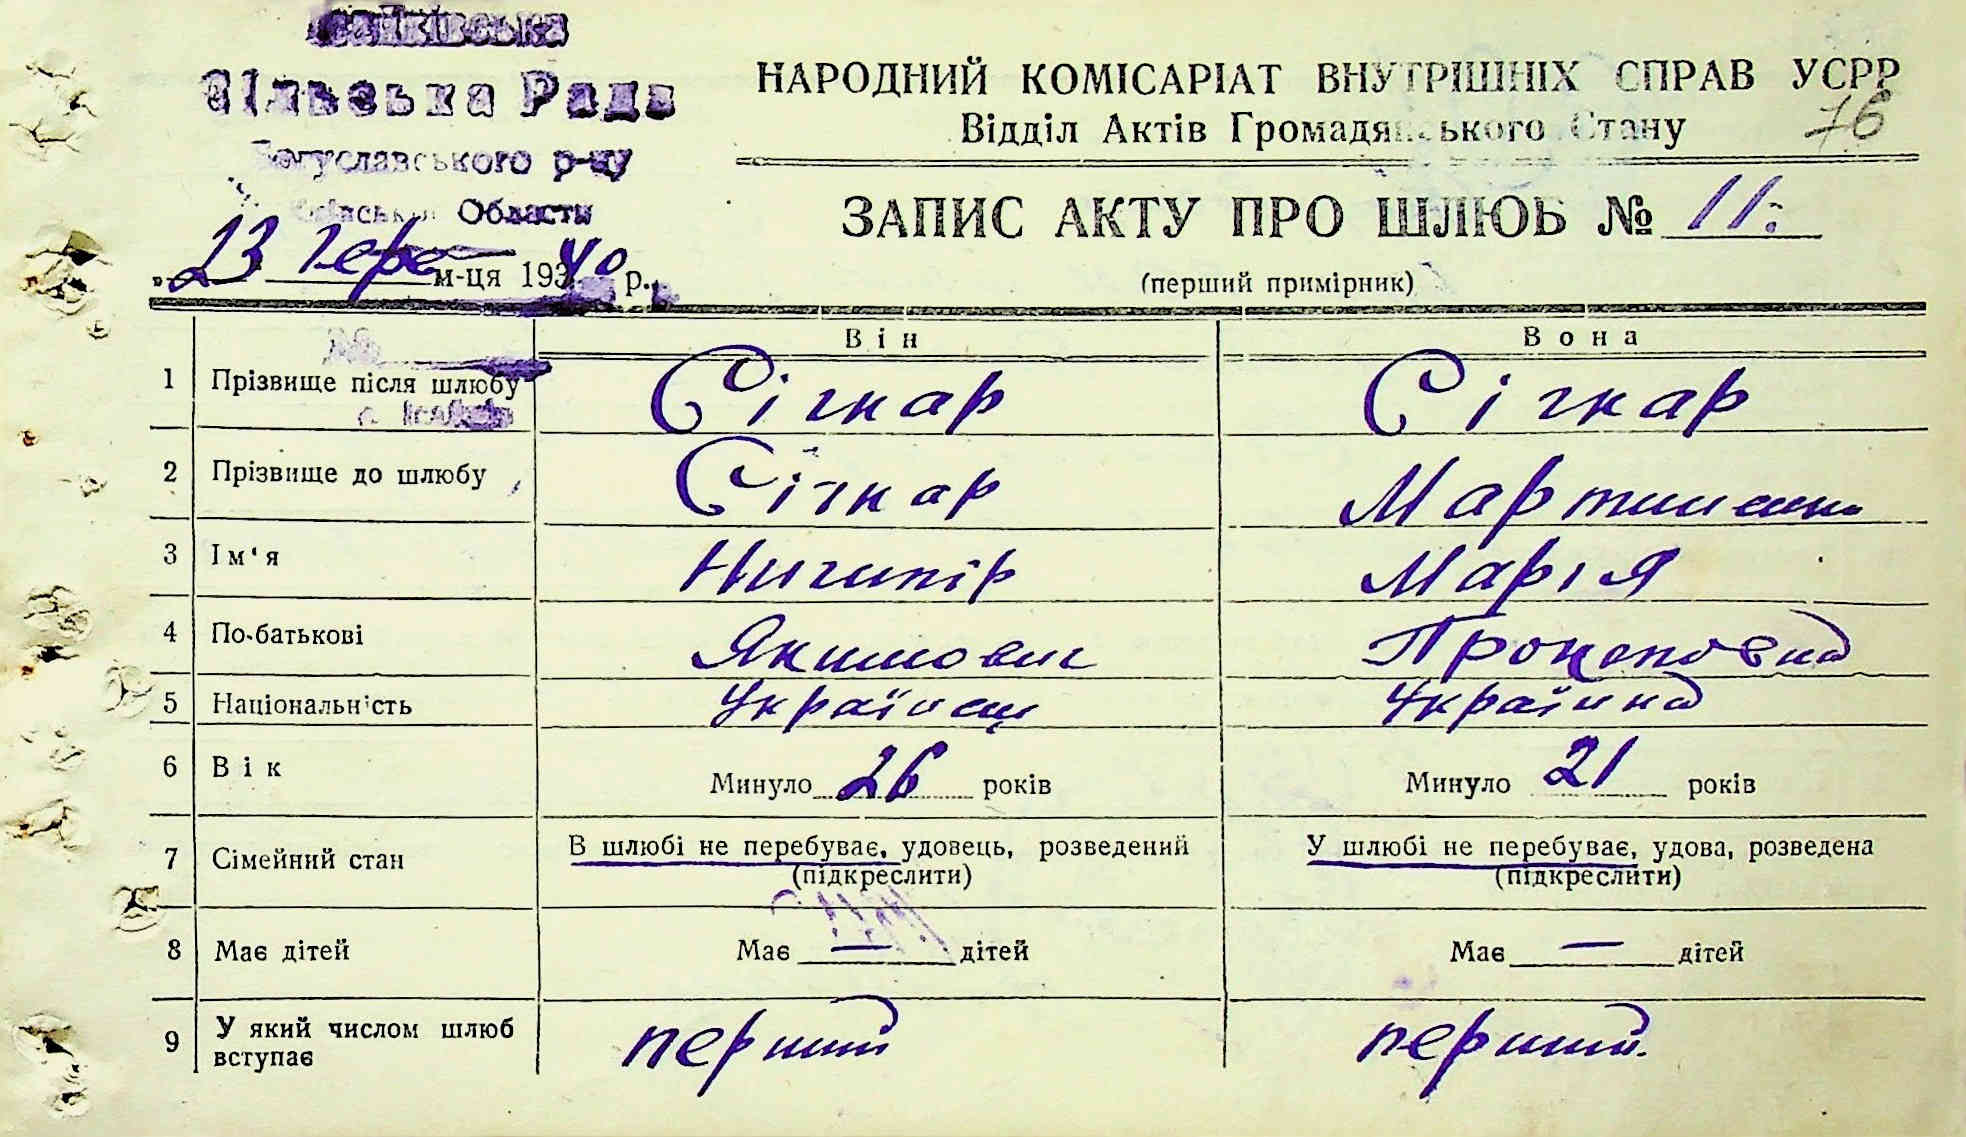 Сільська Рада
Богуславського р-ну
Області
НАРОДНИЙ КОМІСАРІАТ ВНУТРІШНІХ СПРАВ УСРР
76
Відділ Актів Громадянського Стану
ЗАПИС АКТУ ПРО ШЛЮБ № 11
(перший примірник)
„23 м-ця 1940 р.
Він Вона
1 Прізвище після шлюбу Сігнар Сігнар
2 Прізвище до шлюбу Сігнар
3 Ім'я Ничипір Марія
4 По-батькові Якимович Прокоповна
5 Національність Українець Україина
6 Вік Минуло 26 років Минуло 21 років
7 Сімейний стан В шлюбі не перебуває, удовець, розведений У шлюбі не перебуває, удова, розведена
(підкреслити) (підкреслити)
8 Має дітей Має — дітей Має — дітей
9 У який числом шлюб вступає перший перший